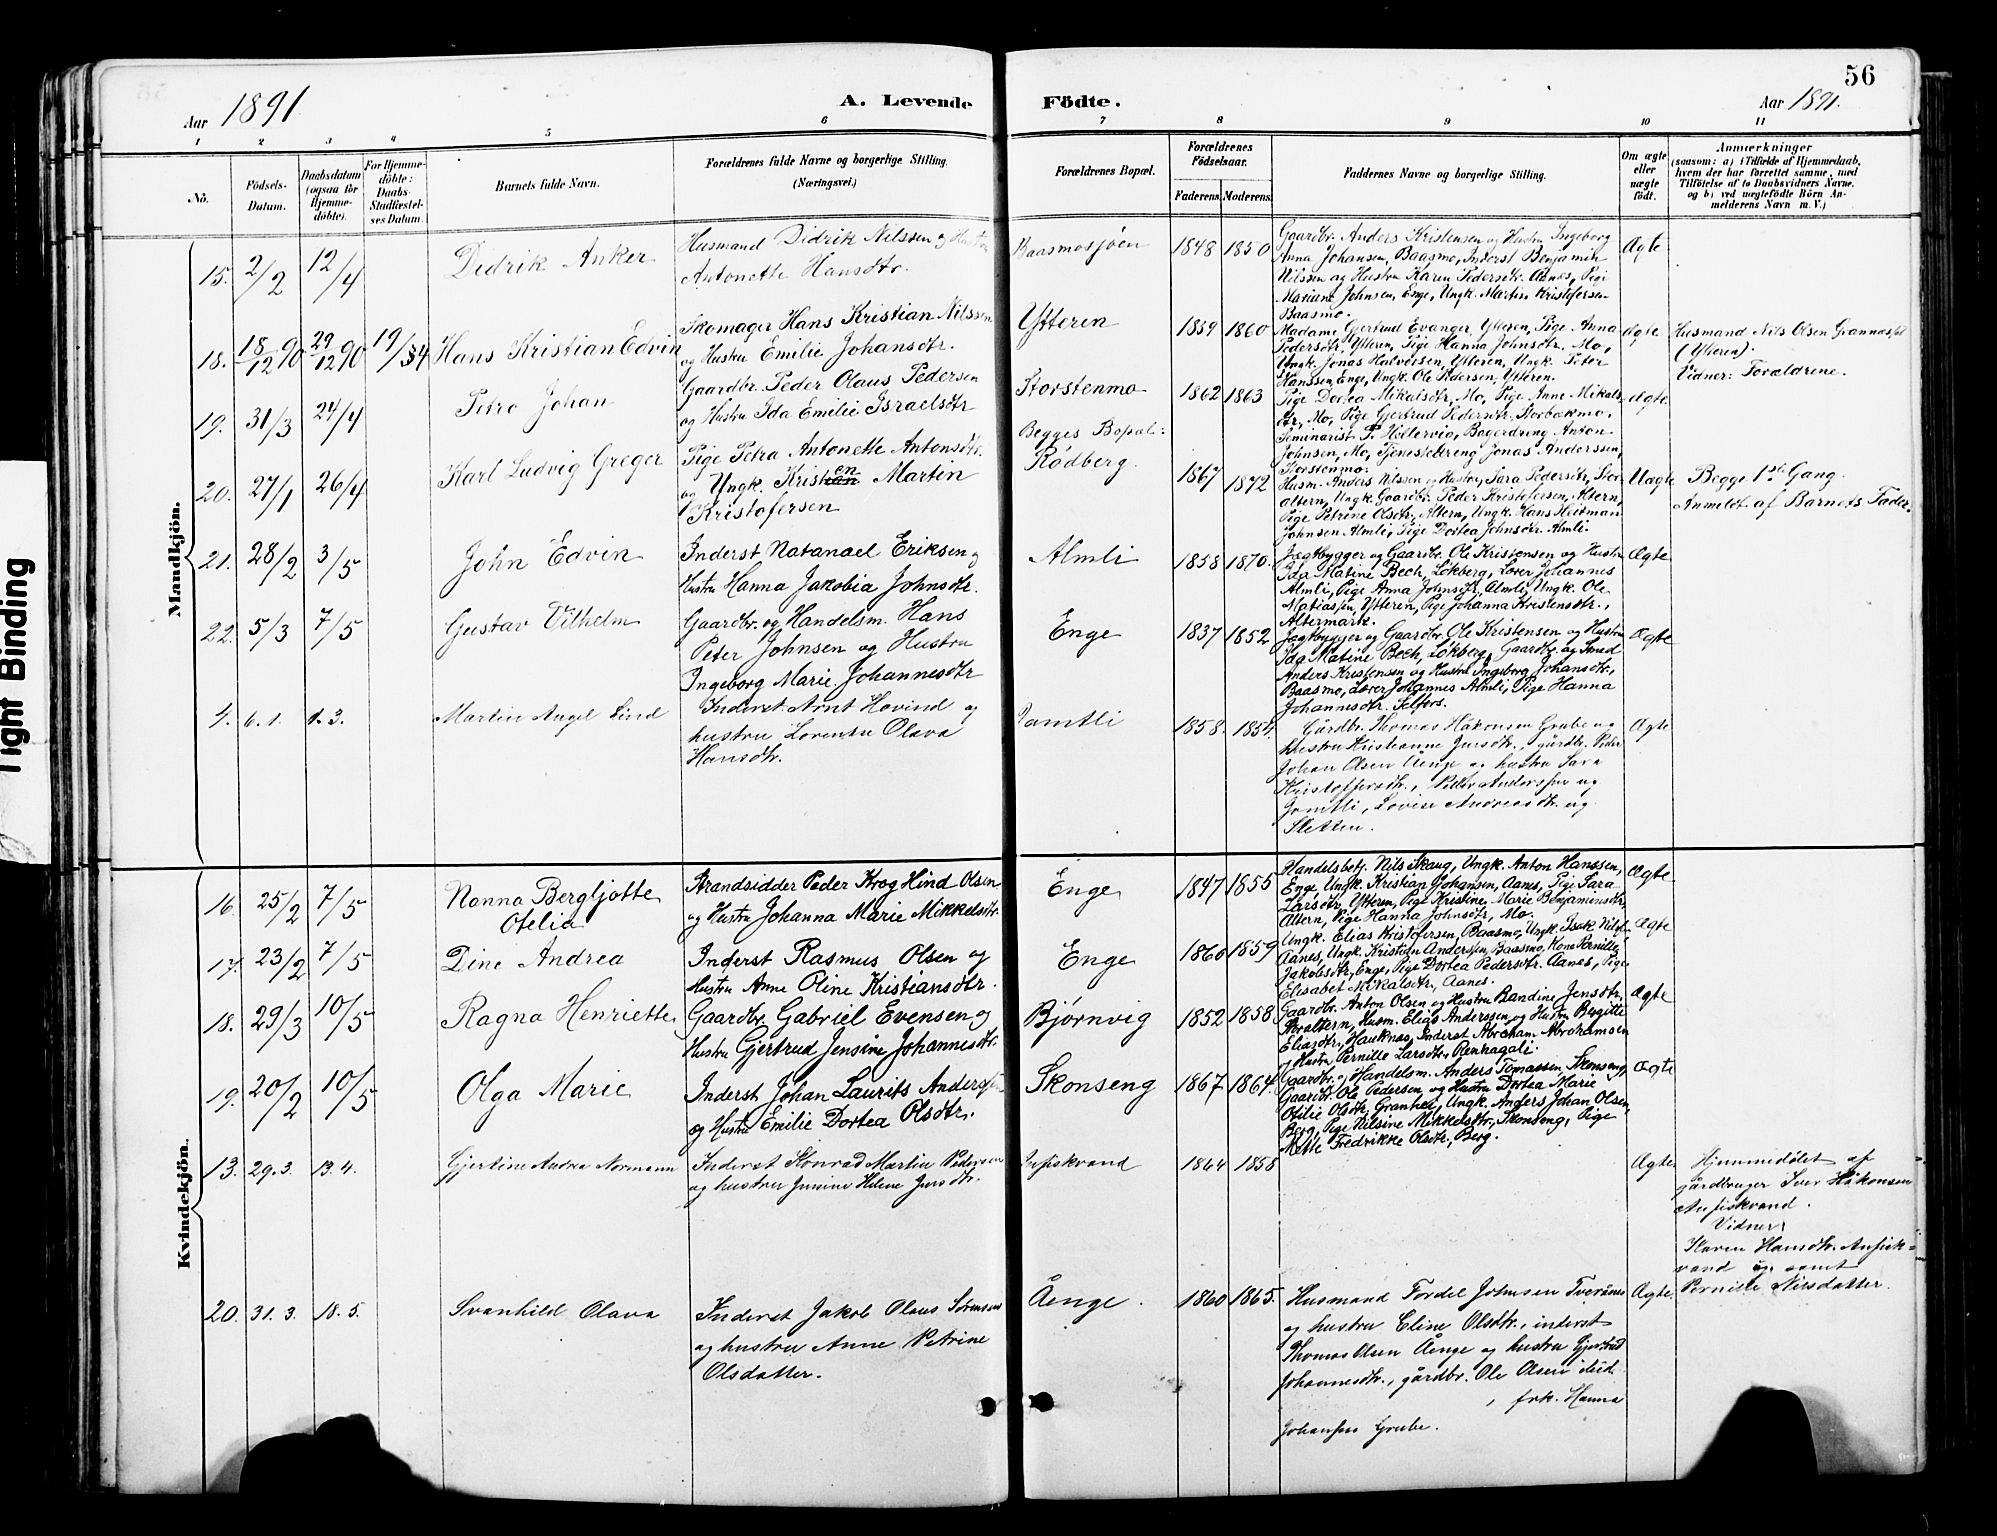 56
Aar 1891
A. Levende
Födte.
Aar 1891.
1 2 3 4 5 6 7 8 9 10 11
No.
Födsels-
Datum.
Daabsdatum
(ogsaa for
Hjemme-
döbte).
For Hjemme-
döbte:
Daabs-
Stadfæstel-
ses Datum.
Barnets fulde Navn.
Forældrenes fulde Navne og borgerlige Stilling.
(Næringsvei.)
Forældrenes Bopæl.
Forældrenes
Födselsaar.
Faderens. Moderens.
Faddernes Navne og borgerlige Stilling.
Om ægte
eller
uægte
født.
Anmærkninger
(saasom: a) i Tilfælde af Hjemmedaab,
hvem der har forrettet samme, med
Tilföielse af to Daabsvidners Navne,
og b) ved uægtefödte Börn An-
melderens Navn m. V.)
Tight Binding
Mandkjön.
15. 2/2 12/4 Didrik Anker
Husmand Didrik Nilssen og Hustru
Antonette Hansdtr.
Baasmosjøen 1848 1850
Gaardbr. Anders Kristensen og Hustru Ingeborg
Anna Johansen, Baasmo, Inderst Benjamin
Nilssen og Hustru Karen Pedersdtr. Aanes, Pige
Mariene Johnsen, Enge, Ungk. Martin Kristofersen
Baasmo.
Ægte
18. 18/12 90 29/12 90 19/3 4 Hans Kristian Edvin
Skomager Hans Kristian Nilssen
og Hustru Emilie Johansdtr.
Ytteren 1859 1860
Madame Gjertrud Evanger, Ytteren, Pige Anna
Pedersdtr, Ytteren, Pige Hanna Johnsdtr. Mo,
Ungk. Jonas Halvorsen, Ytteren, Ungk. Peter
Hanssen, Enge, Ungk. Ole Pedersen, Ytteren.
Ægte
Husmand Nils Olsen
(Ytteren).
Vidner: Forældrene.
19. 31/3 24/4 Petro Johan
Gaardbr. Peder Olaus Pedersen
og Hustru Ida Emilie Israelsdtr
Storstenmo 1862 1863
Pige Dortea Mikalsdtr, Mo, Pige Anne Mikals-
dtr, Mo, Pige Gjertrud Pedersdtr. Storbækmo,
Seminarist P. Hellervig, Bagerdreng Anton
Johnsen, Mo, Tjenestedreng Jonas Anderssen,
Storstenmo.
Ægte
20. 27/1 26/4 Karl Ludvig Greger
Pige Petra Antonette Antonsdtr.
og Ungk. Kristen Martin
Kristofersen
Begges Bopæl:
Rødberg. 1867 1872
Husm. Anders Nilsen og Hustru Sara Pedersdtr, Stor-
altern, Ungk. Gaardbr. Peder Kristofersen, Altern,
Pige Petrine Olsdtr, Altern, Ungk. Hans Heitman
Johnsen Almli, Pige Dortea Johnsdtr. Almli.
Uægte
Begge 1ste Gang.
Anmeldt af Barnets Fader.
21. 28/2 3/5 John Edvin
Inderst Natanael Eriksen og
Hustru Hanna Jakobia Johnsdtr.
Almli 1858 1870.
Jægtbygger og Gaardbr. Ole Kristensen og Hustru
Ida Matine Bech, Løkberg, Lærer Johannes
Almli, Pige Anna Johnsdtr, Almli, Ungk. Ole
Matiassen, Ytteren, Pige Johanna Kristensdtr.,
Altermark.
Ægte
22. 5/3 7/5 Gustav Vilhelm
Gaardbr. og Handelsm. Hans
Peter Johnsen og Hustru
Ingeborg Marie Johannesdtr
Enge 1837 1852
Jægtbygger og Gaardbr. Ole Kristensen og Hustru
Ida Matine Bech, Løkberg, Gaardbr. og Smed
Anders Kristensen og Hustru Ingeborg Johansdtr,
Baasmo, Lærer Johannes Almli, Pige Hanna
Johannesdtr. Selfors.
Ægte
4. 6.1. 1.3. Martin Angel Lind
Inderst Arnt Hovind og
hustru Lorense Olava
Hansdtr.
Jamtli 1858. 1854.
Gårdbr. Thomas Håkonsen Grube og
hustru Kristianne Jursdtr., gårdbr. Peder
Johan Olsen Åenge og hustru Sara
Kristoffersdtr., Peder Anderssen og
Jamtli, Lovise Andreasdtr. og
Sletten.
Ægte
Kvindekjön.
16. 25/2 7/5 Nanna Bergljotte
Ofelia
Strandsidder Peder Krog Hind Olsen
og Hustru Johanna Marie Mikkelsdtr.
Enge 1847 1855
Handelsbetj. Nils Skaug, Ungk. Anton Hanssen,
Enge, Ungk. Kristian Johansen, Aanes, Pige Sara
Larsdtr, Ytteren, Pige Kristine Marie Benjaminsdtr,
Altern, Pige Hanna Johnsdtr, Mo.
Ægte
17. 23/2 7/5 Dine Andrea
Inderst Rasmus Olsen og
Hustru Anne Oline Kristiansdtr.
Enge 1860 1859
Ungk. Elias Kristofersen, Baasmo, Ungk. Isak Nilsen
Aanes, Ungk. Kristian Andersen, Baasmo, Kone Pernille
Jakobsdtr, Enge, Pige Dortea Pedersdtr. Aanes, Pige
Elisabet Mikalsdtr, Aanes.
Ægte
18. 29/3 10/5 Ragna Henriette
Gaardbr. Gabriel Evensen og
Hustru Gjertrud Jensine Johannesdtr.
Bjørnvig 1852 1858
Gaardbr. Anton Olsen og Hustru Bandine Jensdtr,
Storaltern, Husm. Elias Anderssen og Hustru Bergitte
Eliasdtr, Hauknes, Inderst Abraham Abrahamsen
og Hustru Pernille Larsdtr, Renhagali.
Ægte
19. 20/2 10/5 Olga Marie
Inderst Johan Laurits Anderssen
og Hustru Emilie Dortea Olsdtr.
Skonseng 1867 1864.
Gaardbr. og Handelsm. Anders Tomassen, Skonseng,
Gaardbr. Ole Pedersen og Hustru Dortea Marie
Ofelie Olsdtr, Granhei, Ungk. Anders Johan Olsen,
Berg, Pige Nilsine Mikkelsdtr, Skonseng, Pige
Mette Fredrikke Olsdtr, Berg.
Ægte
13. 29.3. 13.4. Gjertine Andrea Normann
Inderst Konrad Martin Pedersen
og hustru Jensine Helene Jursdtr.
1864 1858
Ægte
Hjemmedøbt af
gårdbruger Iver Håkonsen
Anfiskvand.
Vidner:
Karen Hansdtr. Anfisk-
vand og samt
Pernille Nilsdatter.
20. 31.3. 18.5. Svanhild Olava
Inderst Jakob Olaus Sørensen
og hustru Anne Petrine
Olsdatter.
Åenge. 1860 1865.
Husmand Fordel Johnsen Tverånes
og hustru Eline Olsdtr., inderst
Thomas Olsen Åenge og hustru Gjertrud
Johannesdtr., gårdbr. Ole Olsen ibid.
, frk. Hanna
Johansen Grube.
Ægte.